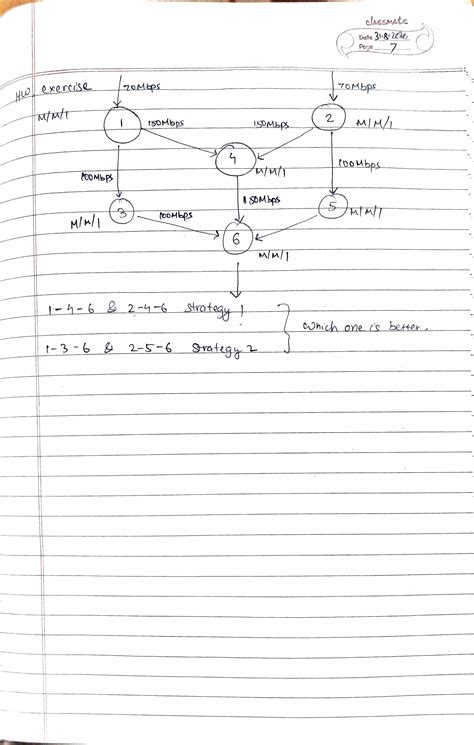 classmate
Date 31-8-2020
Page 7
HW exercise
70Mbps
70Mbps
M/M/1
1
150Mbps
150Mbps
2
M/M/1
4
M/M/1
100Mbps
100Mbps
150Mbps
M/M/1
3
100Mbps
5
M/M/1
6
M/M/1
1-4-6 & 2-4-6 strategy 1
which one is better.
1-3-6 & 2-5-6 strategy 2